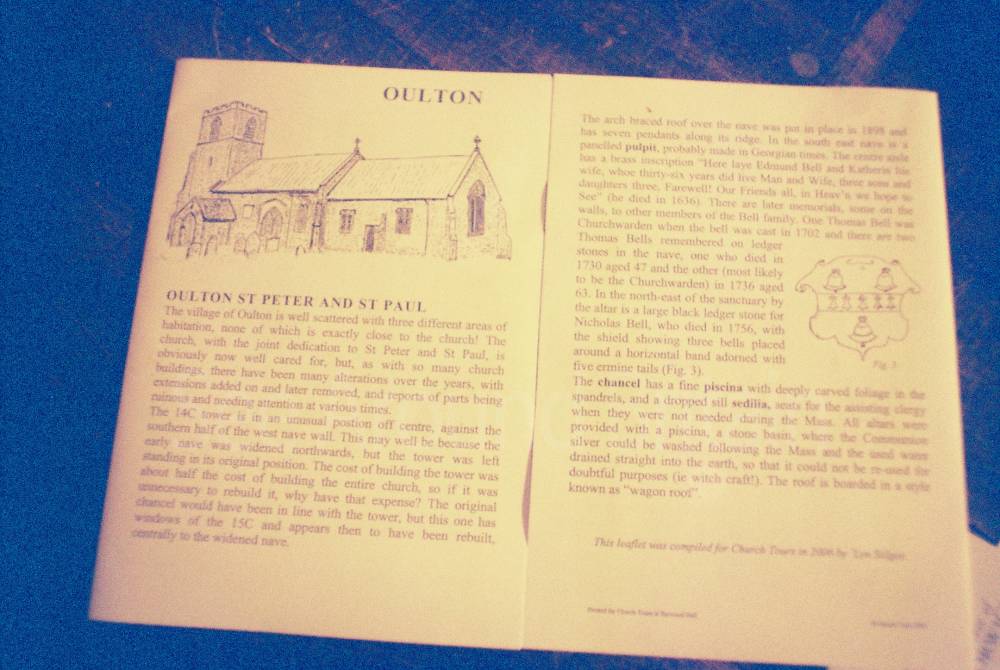 OULTON
OULTON ST PETER AND ST PAUL
The village of Oulton is well scattered with three different areas of
habitation, none of which is exactly close to the church! The
church, with the joint dedication to St Peter and St Paul, is
obviously now well cared for, but, as with so many church
buildings, there have been many alterations over the years, with
extensions added on and later removed, and reports of parts being
ruinous and needing attention at various times.
The 14C tower is in an unusual postion off centre, against the
southern half of the west nave wall. This may well be because the
early nave was widened northwards, but the tower was left
standing in its original position. The cost of building the tower was
about half the cost of building the entire church, so if it was
unnecessary to rebuild it, why have that expense? The original
chancel would have been in line with the tower, but this one has
windows of the 15C and appears then to have been rebuilt,
centrally to the widened nave.
The arch braced roof over the nave was put in place in 1898 and
has seven pendants along its ridge. In the south east nave is a
panelled pulpit, probably made in Georgian times. The centre aisle
has a brass inscription "Here laye Edmund Bell and Katherin his
wife, whoe thirty-six years did live Man and Wife, three sons and
daughters three, Farewell! Our Friends all, in Heav'n we hope to
See" (he died in 1636). There are later memorials, some on the
walls, to other members of the Bell family. One Thomas Bell was
Churchwarden when the bell was cast in 1702 and there are two
Thomas Bells remembered on ledger
stones in the nave, one who died in
1730 aged 47 and the other (most likely
to be the Churchwarden) in 1736 aged
63. In the north-east of the sanctuary by
the altar is a large black ledger stone for
Nicholas Bell, who died in 1756, with
the shield showing three bells placed
around a horizontal band adorned with
five ermine tails (Fig. 3).
Fig. 3
The chancel has a fine piscina with deeply carved foliage in the
spandrels, and a dropped sill sedilia, seats for the assisting clergy
when they were not needed during the Mass. All altars were
provided with a piscina, a stone basin, where the Communion
silver could be washed following the Mass and the used water
drained straight into the earth, so that it could not be re-used for
doubtful purposes (ie witch craft!). The roof is boarded in a style
known as "wagon roof".
This leaflet was compiled for Church Tours in 2006 by Lyn Stilgoe
Printed by Church Tours at